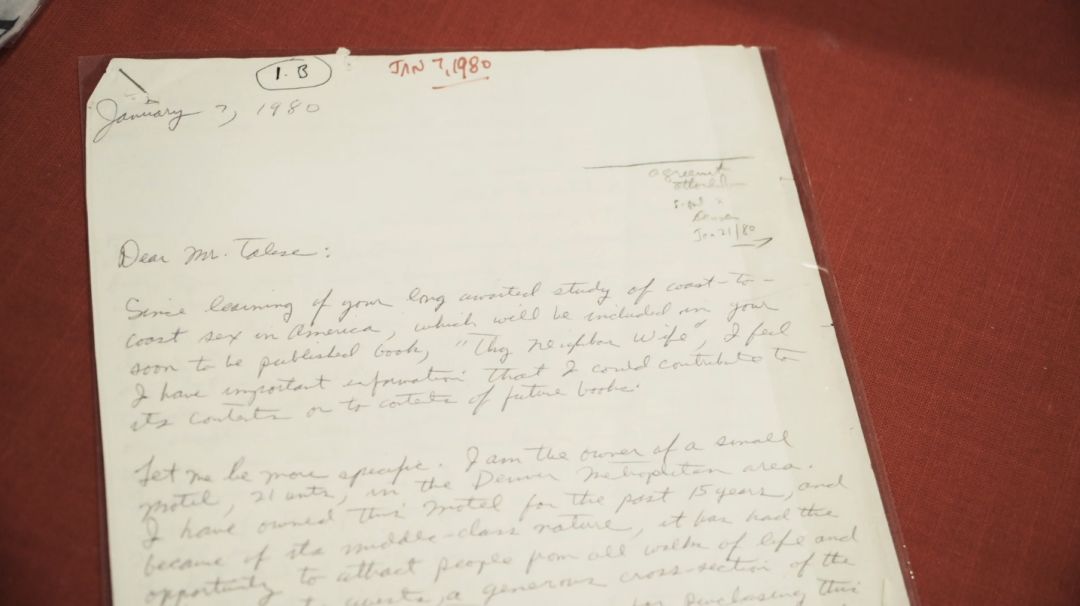 1. B
JAN 7, 1980
January 7, 1980
agreemt
attached
Denver
Jan 21/80
Dear Mr. Talese:
Since learning of your long awaited study of coast-to-
coast sex in America, which will be included in your
soon to be published book, "Thy Neighbor Wife", I feel
I have important information that I could contribute to
its contents or to contents of future books.
Let me be more specific. I am the owner of a small
motel, 21 units, in the Denver Metropolitan area.
I have owned this motel for the past 15 years, and
because of its middle-class nature, it has had the
opportunity to attract people from all walks of life and
guests, a generous cross-section of the
purchasing this